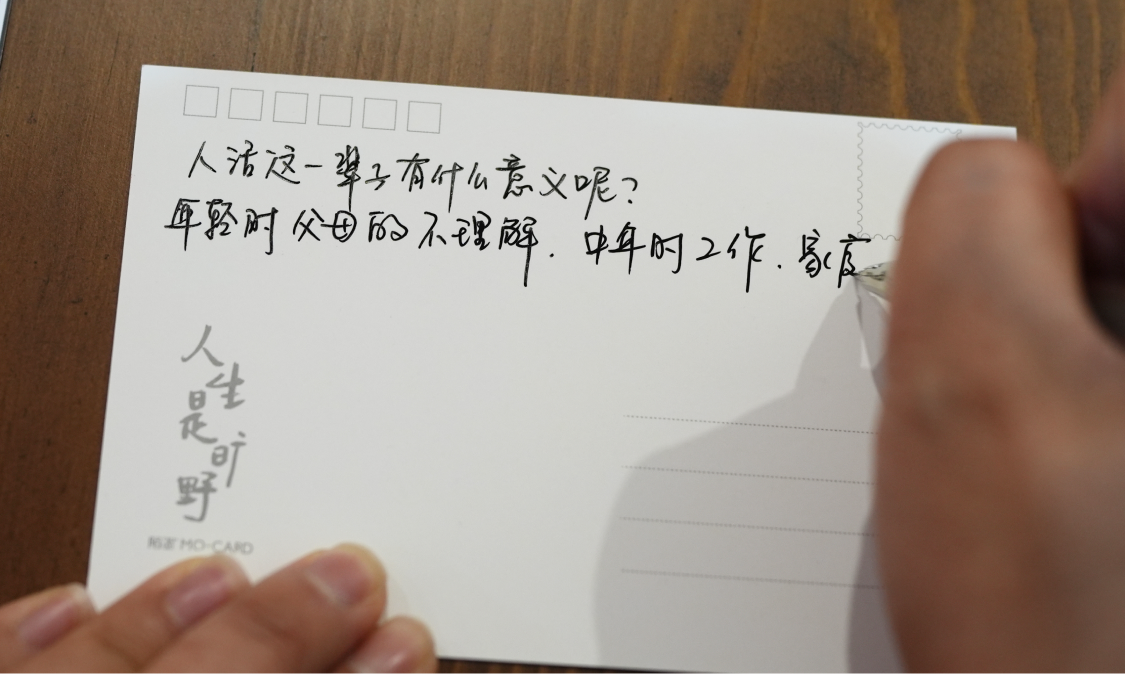 人活这一辈子有什么意义呢?
年轻时父母的不理解.中年时工作.家庭
人生是旷野
MO-CARD